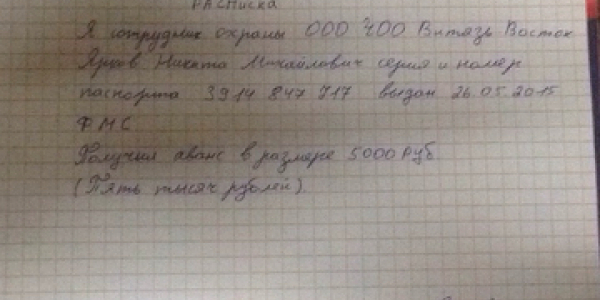 РАСПИСКА
Я сотрудник охраны ООО ЧОО Витязь Восток
Ярков Никита Михайлович серия и номер
паспорта 3914 847 717 выдан 26.05.2015
ФМС
Получил аванс в размере 5000 руб
(Пять тысяч рублей).